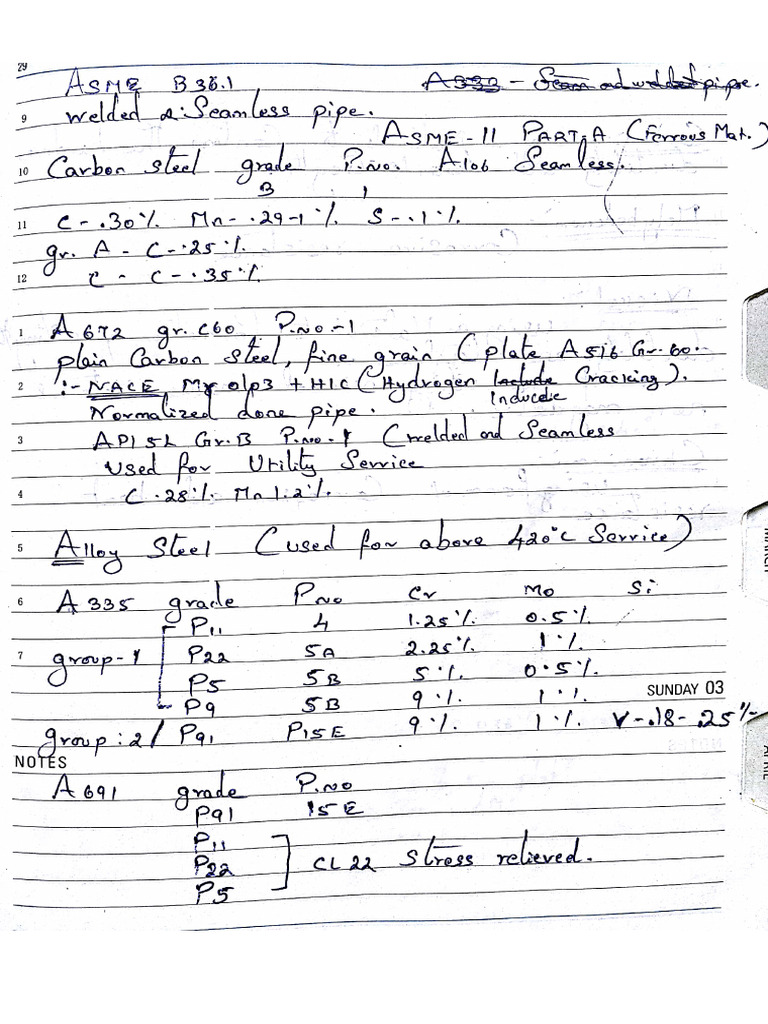 29
ASME B36.1 A333 - Seam and welded pipe.
9 welded & Seamless pipe.
ASME-II PART-A (Ferrous Mat.)
10 Carbon steel grade P.no. A106 Seamless.
B 1
11 C - .30% Mn - .29-1% S - .1%
gr. A - C - .25%
12 C - C - .35%
1 A672 gr. C60 P.no-1
plain Carbon Steel, fine grain (plate A516 Gr. 60.
2 :- NACE Mr 01p3 + HIC (Hydrogen Include Cracking).
Inducedie
Normalized done pipe.
3 API 5L Gr.B P.no-1 (welded and Seamless
used for Utility Service
4 C .28% Mn 1.2%
5 Alloy Steel (used for above 420°C Service)
6 A335 grade P.no Cr Mo Si
P11 4 1.25% 0.5%
7 group-1 P22 5A 2.25% 1%
P5 5B 5% 0.5%
SUNDAY 03
P9 5B 9% 1%
group:2/ P91 P15E 9% 1% V-.18-.25%
NOTES
A691 grade P.no
P91 15E
P11
P22 CL22 Stress relieved.
P5